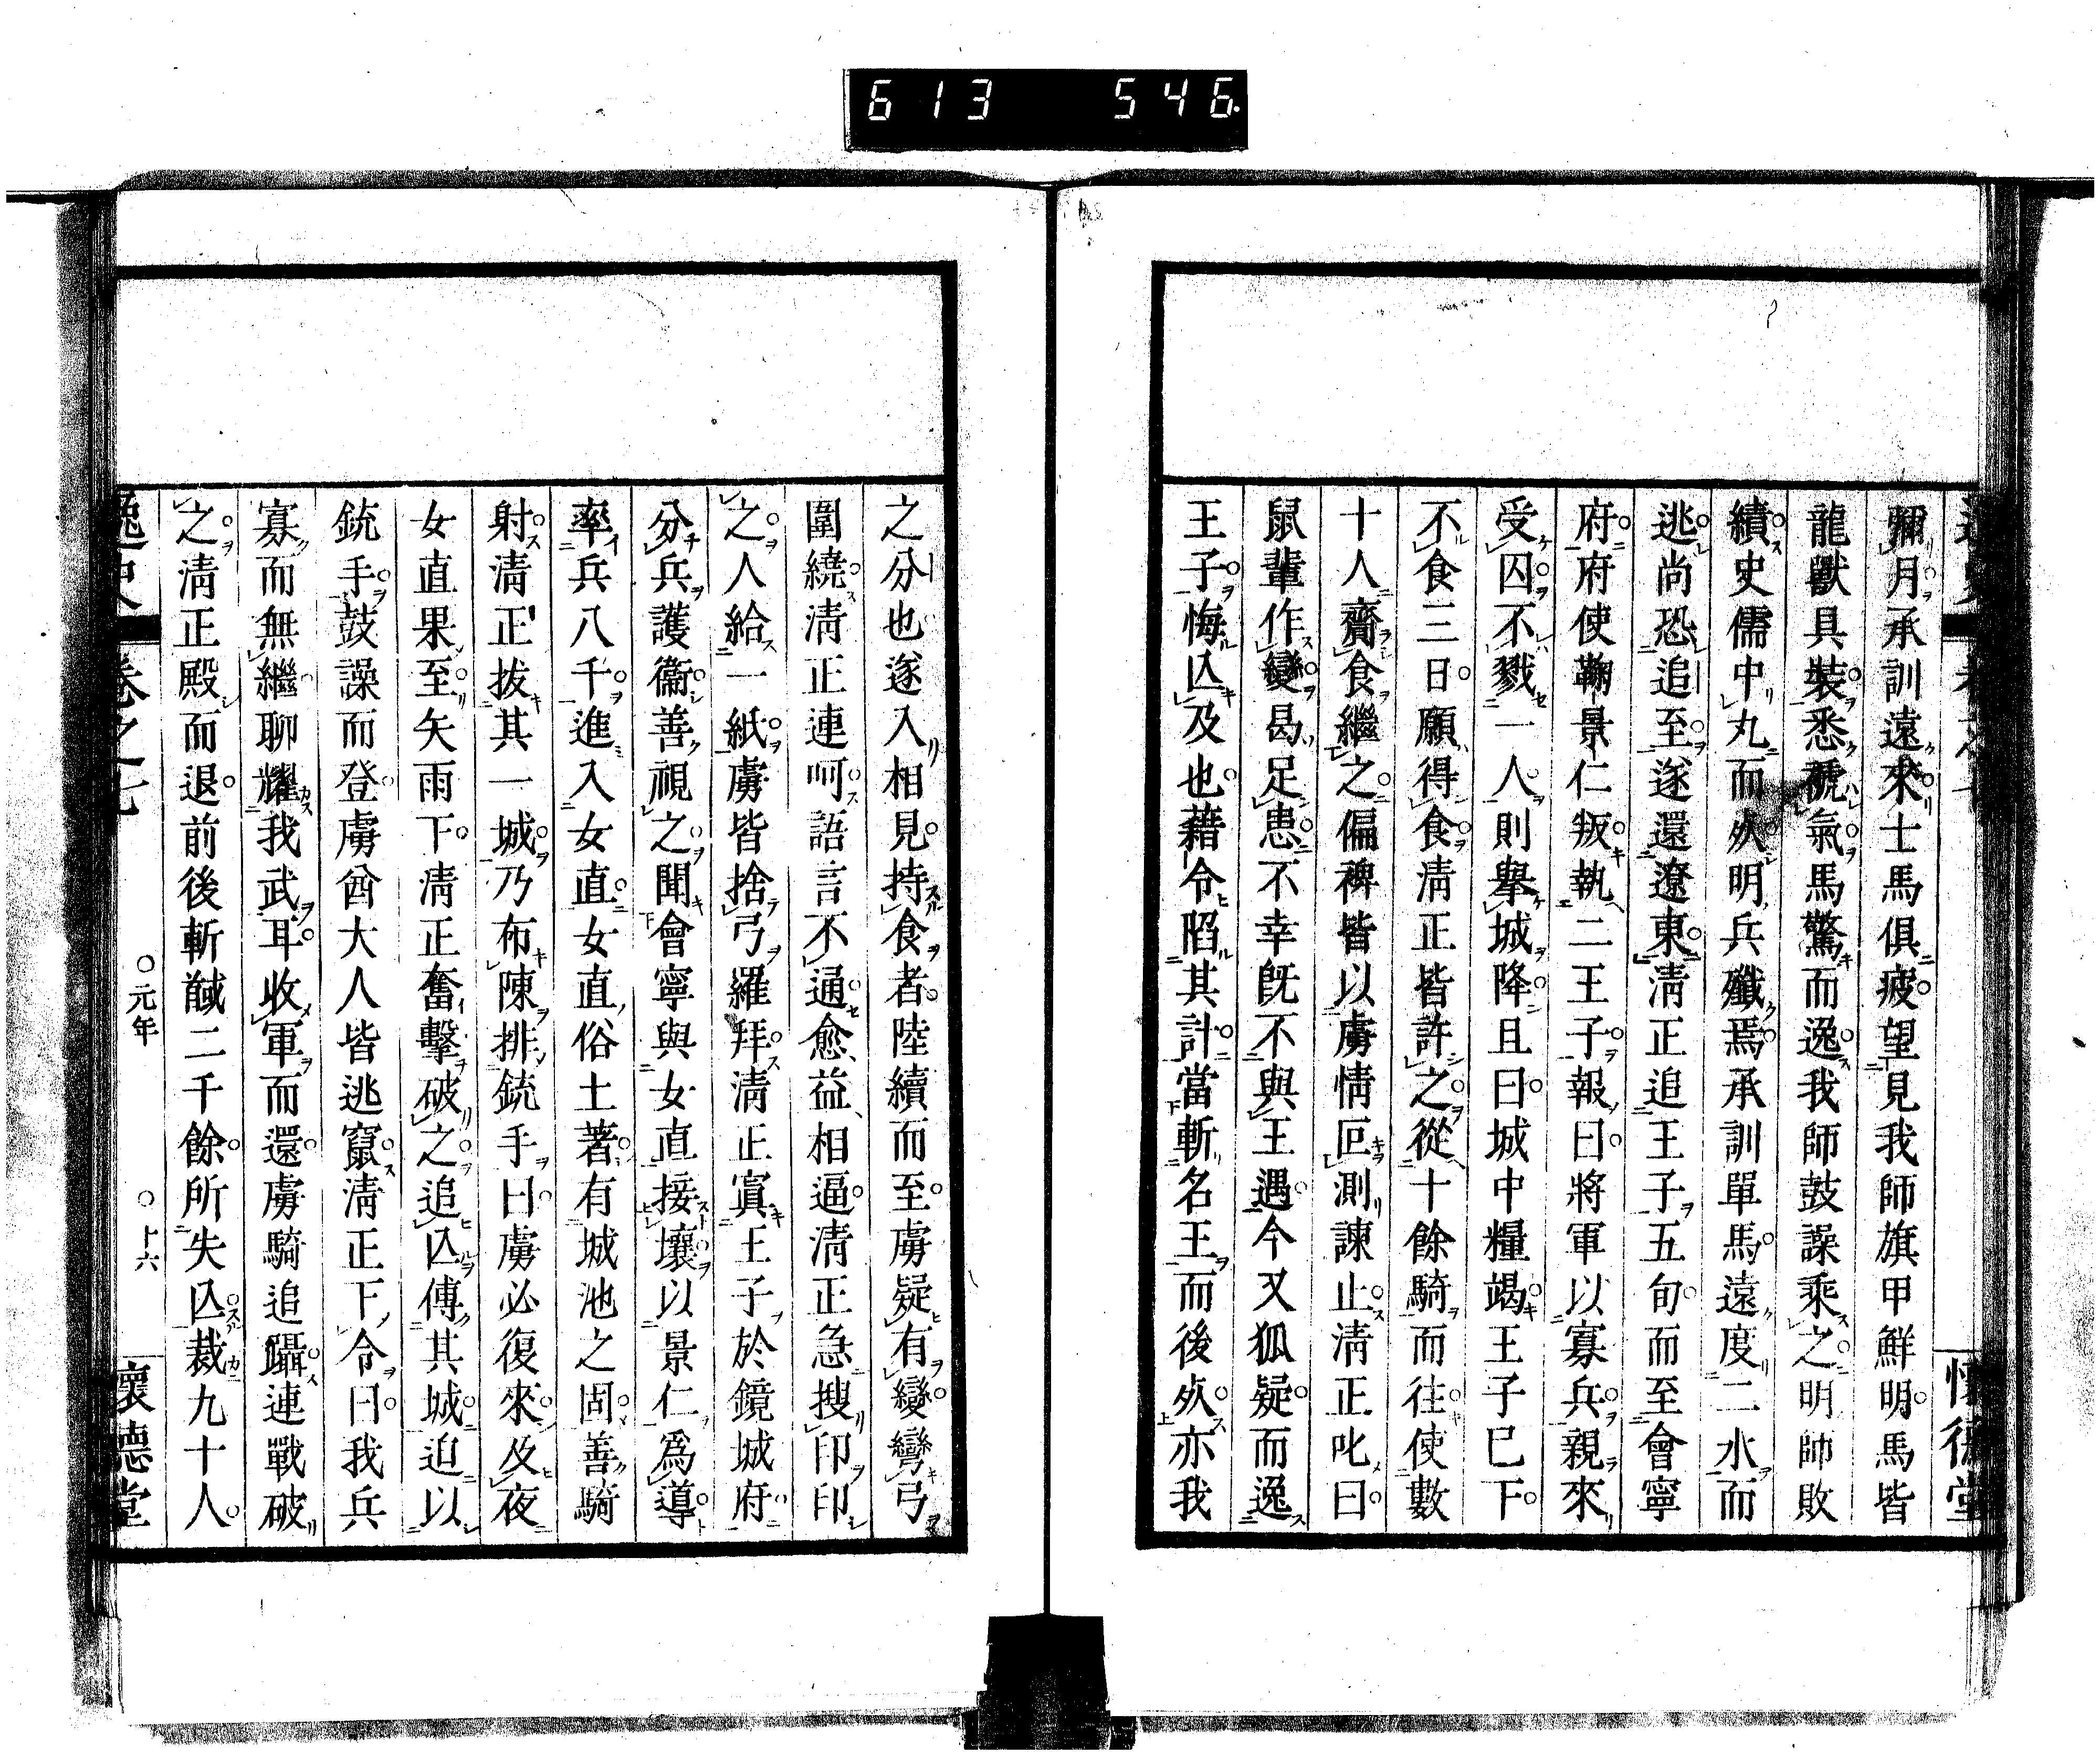 613 546.
彌月承訓遠來士馬俱疲望見我師旗甲鮮明馬皆
龍獸具裝悉褫氣馬驚而逸我師鼓譟乘之明師敗
績史儒中丸而歿明兵殲焉承訓單馬遠度二水而
逃尚恐追至遂還遼東淸正追王子五旬而至會寧
府府使鞠景仁叛執二王子報曰將軍以寡兵親來
受囚不戮一人則擧城降且曰城中糧竭王子已下
不食三日願得食淸正皆許之從十餘騎而往使數
十人齎食繼之偏裨皆以虜情叵測諫止淸正叱曰
鼠輩作變曷足患不幸旣不與王遇今又狐疑而逸
王子悔亾及也藉令陷其計當斬名王而後歿亦我
之分也遂入相見持食者陸續而至虜疑有變彎弓
圍繞淸正連呵語言不通愈益相逼淸正急搜印印
之人給一紙虜皆捨弓羅拜淸正寘王子於鏡城府
分兵護衞善視之聞會寧與女直接壤以景仁爲導
率兵八千進入女直女直俗土著有城池之固善騎
射淸正拔其一城乃布陳排銃手曰虜必復來及夜
女直果至矢雨下淸正奮擊破之追亾傅其城迫以
銃手鼓譟而登虜酋大人皆逃竄淸正下令曰我兵
寡而無繼聊耀我武耳收軍而還虜騎追躡連戰破
之淸正殿而退前後斬馘二千餘所失亾裁九十人
逸史 卷之七 ○元年 ○十六 懷德堂